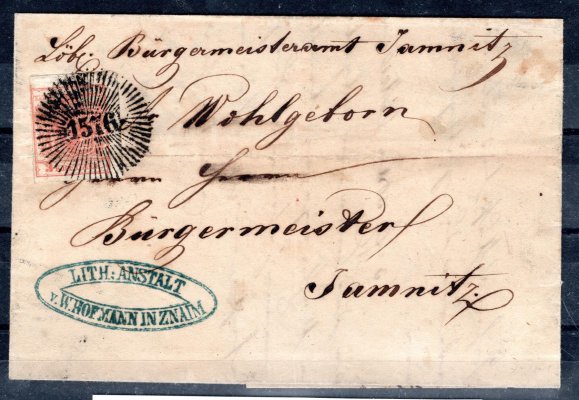 Löbl. Bürgermeisteramt Jamnitz
Wohlgeborn
Herrn Herrn
Bürgermeister
Jamnitz.
LITH: ANSTALT
v. W. HOFMANN IN ZNAIM